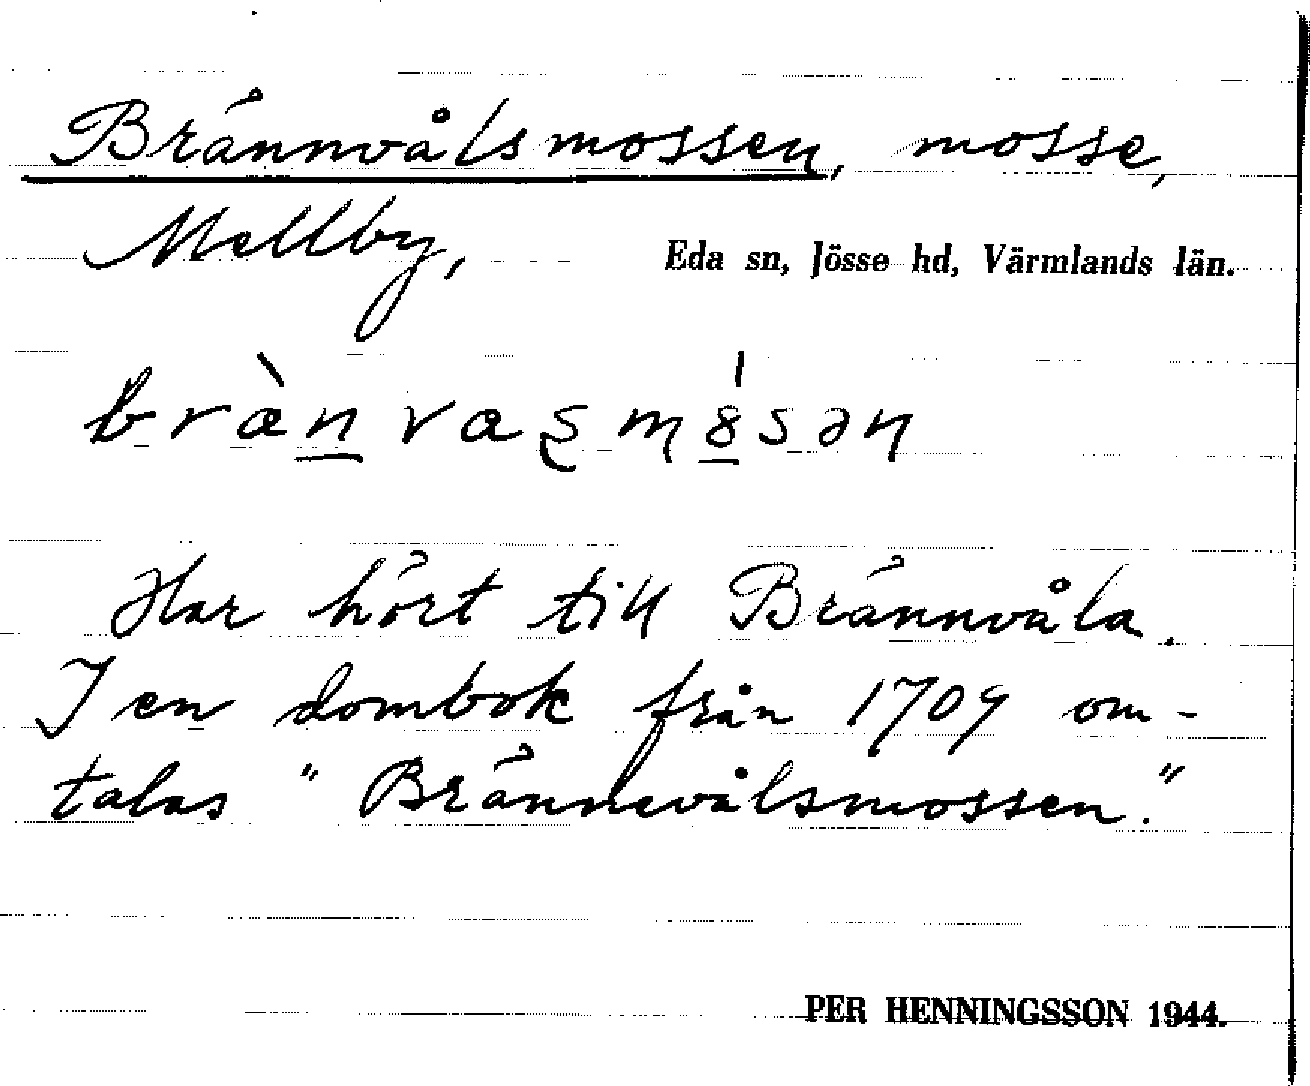 Brännvålsmossen, mosse,
Mellby, Eda sn, Jösse hd, Värmlands län.
Har hört till Brännvåla.
I en dombok från 1709 om-
talas "Brännevålsmossen."
PER HENNINGSSON 1944.